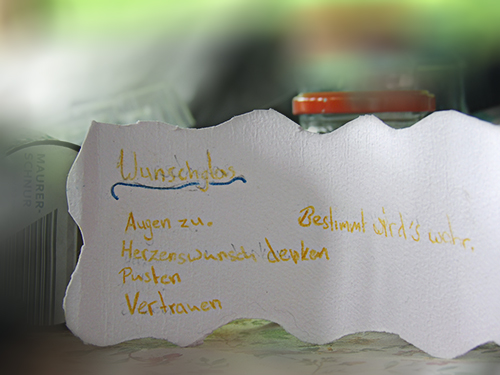 MAURER-
SCHNUR
Wunschglas
Augen zu.
Herzenswunsch denken
Pusten
Vertrauen
Bestimmt wird's wahr.